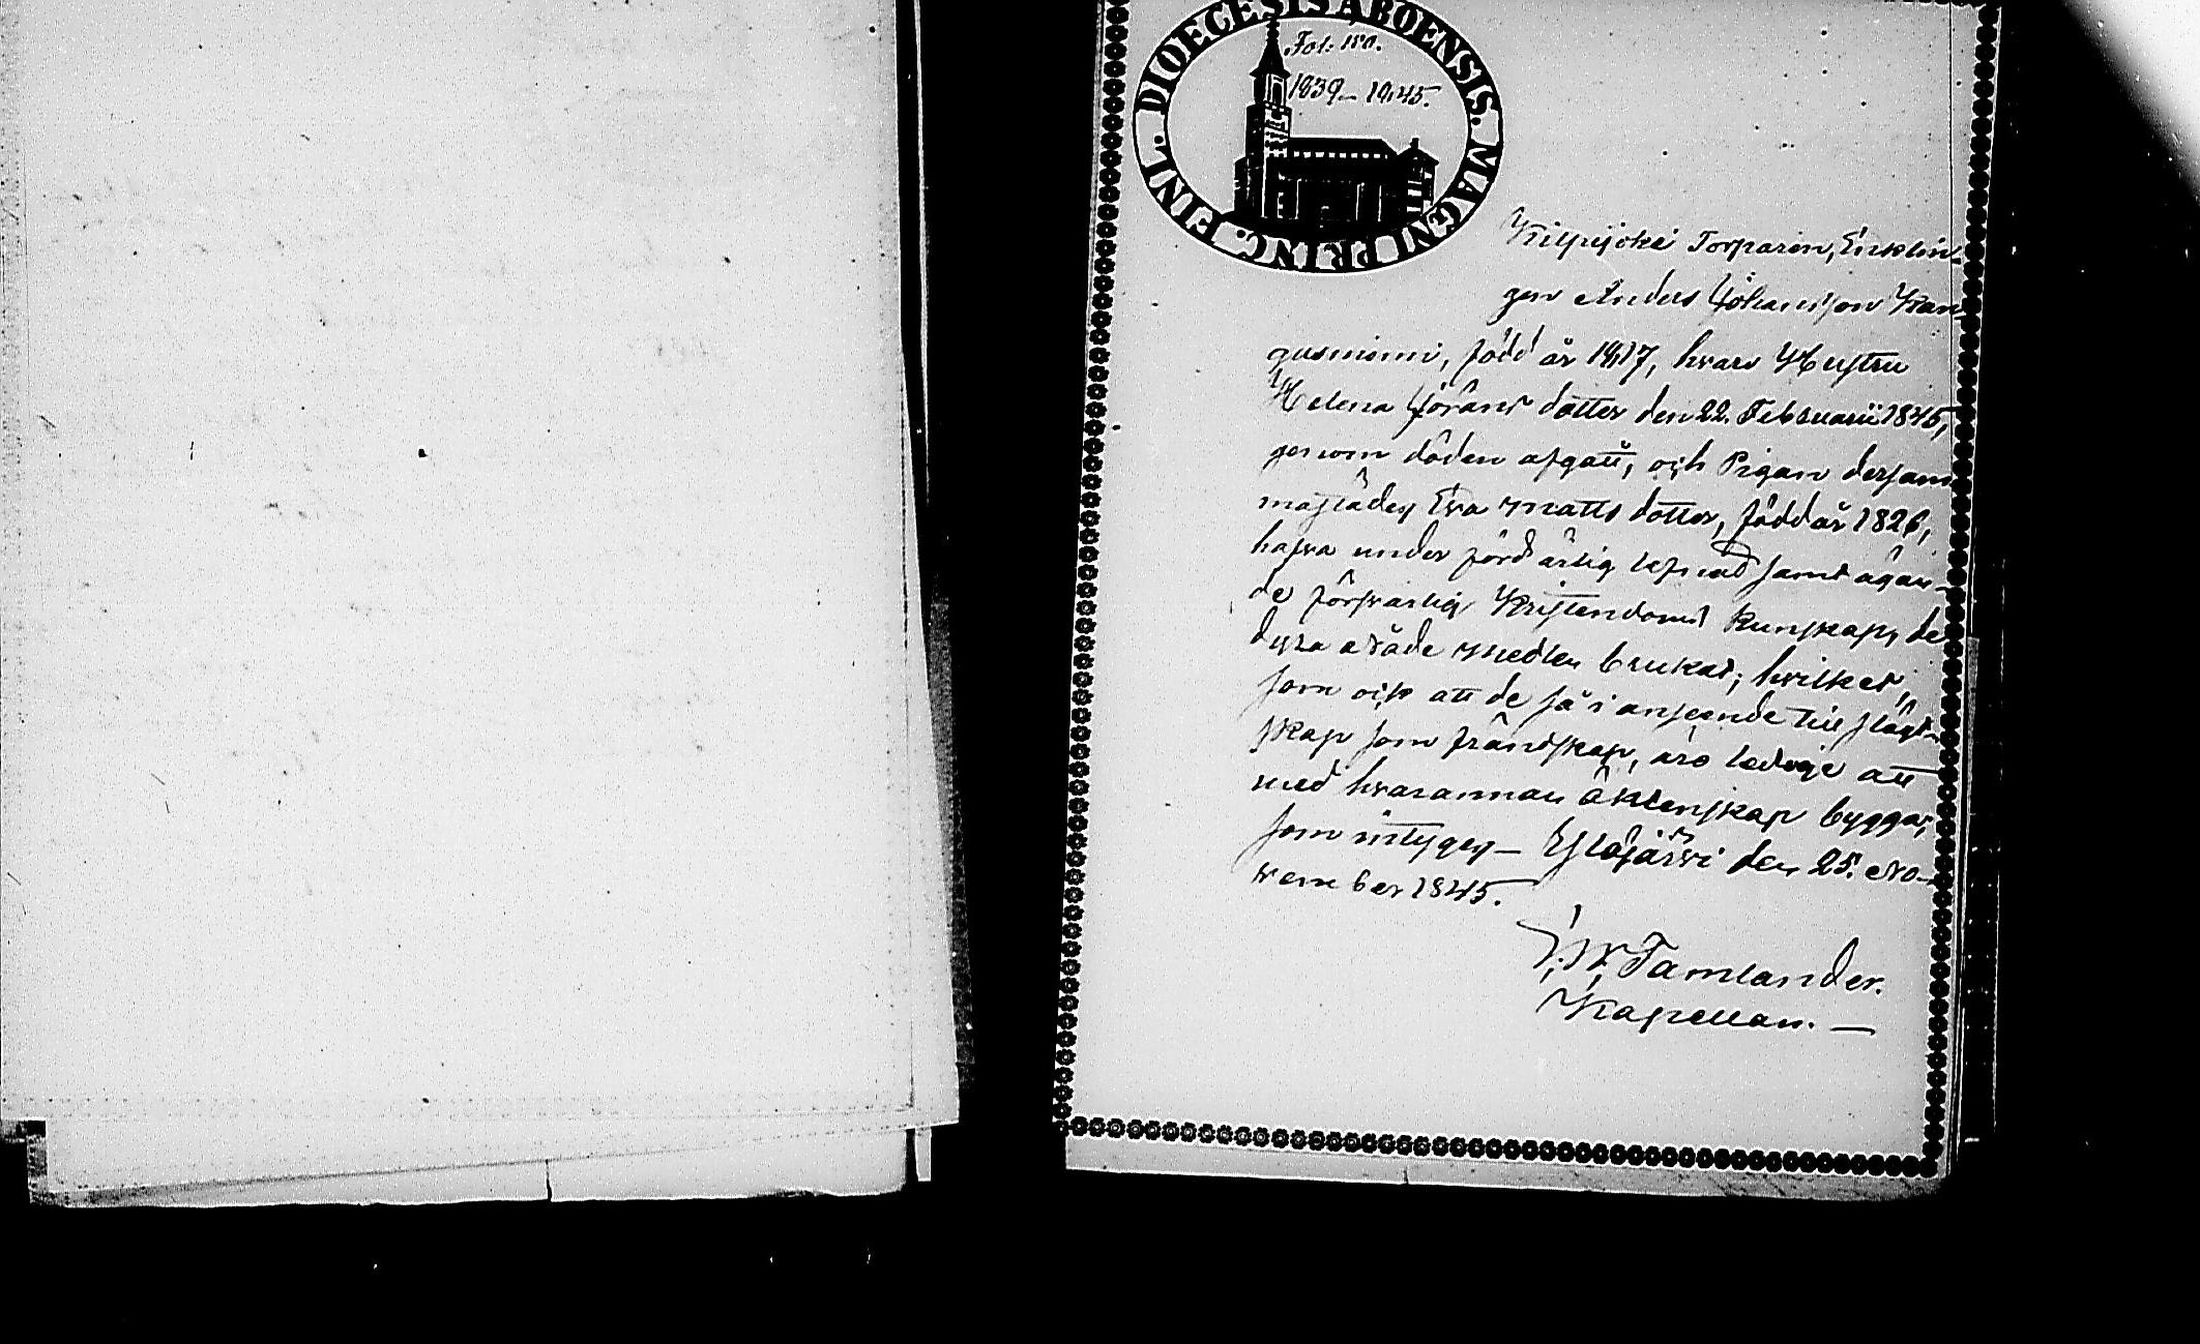 DIOECESIS ABOENSIS. MAGNI PRINC. FINL.
Fol: 180.
1839–1845.
Kilpijoki Torparen, Enklin-
gen Anders Johansson Kan-
gasniemi, född år 1817, hvars Hustru
Helena Jörans dotter den 22. Februarii 1845,
genom döden afgått, och Pigan dersam-
mastädes Eva Matts dotter, född år 1826,
hafva under lefnad samt ägan-
de försvarlig Kristendoms kunskap, de
dyra nåde medlen brukat; hvilket,
som ock att de så i anseende till slägt-
skap som frändskap, äro ledige att
med hvarannan äktenskap bygga,
som intygas – Ylöjärvi den 25. No-
vember 1845.
Tamlander.
Kapellan. –